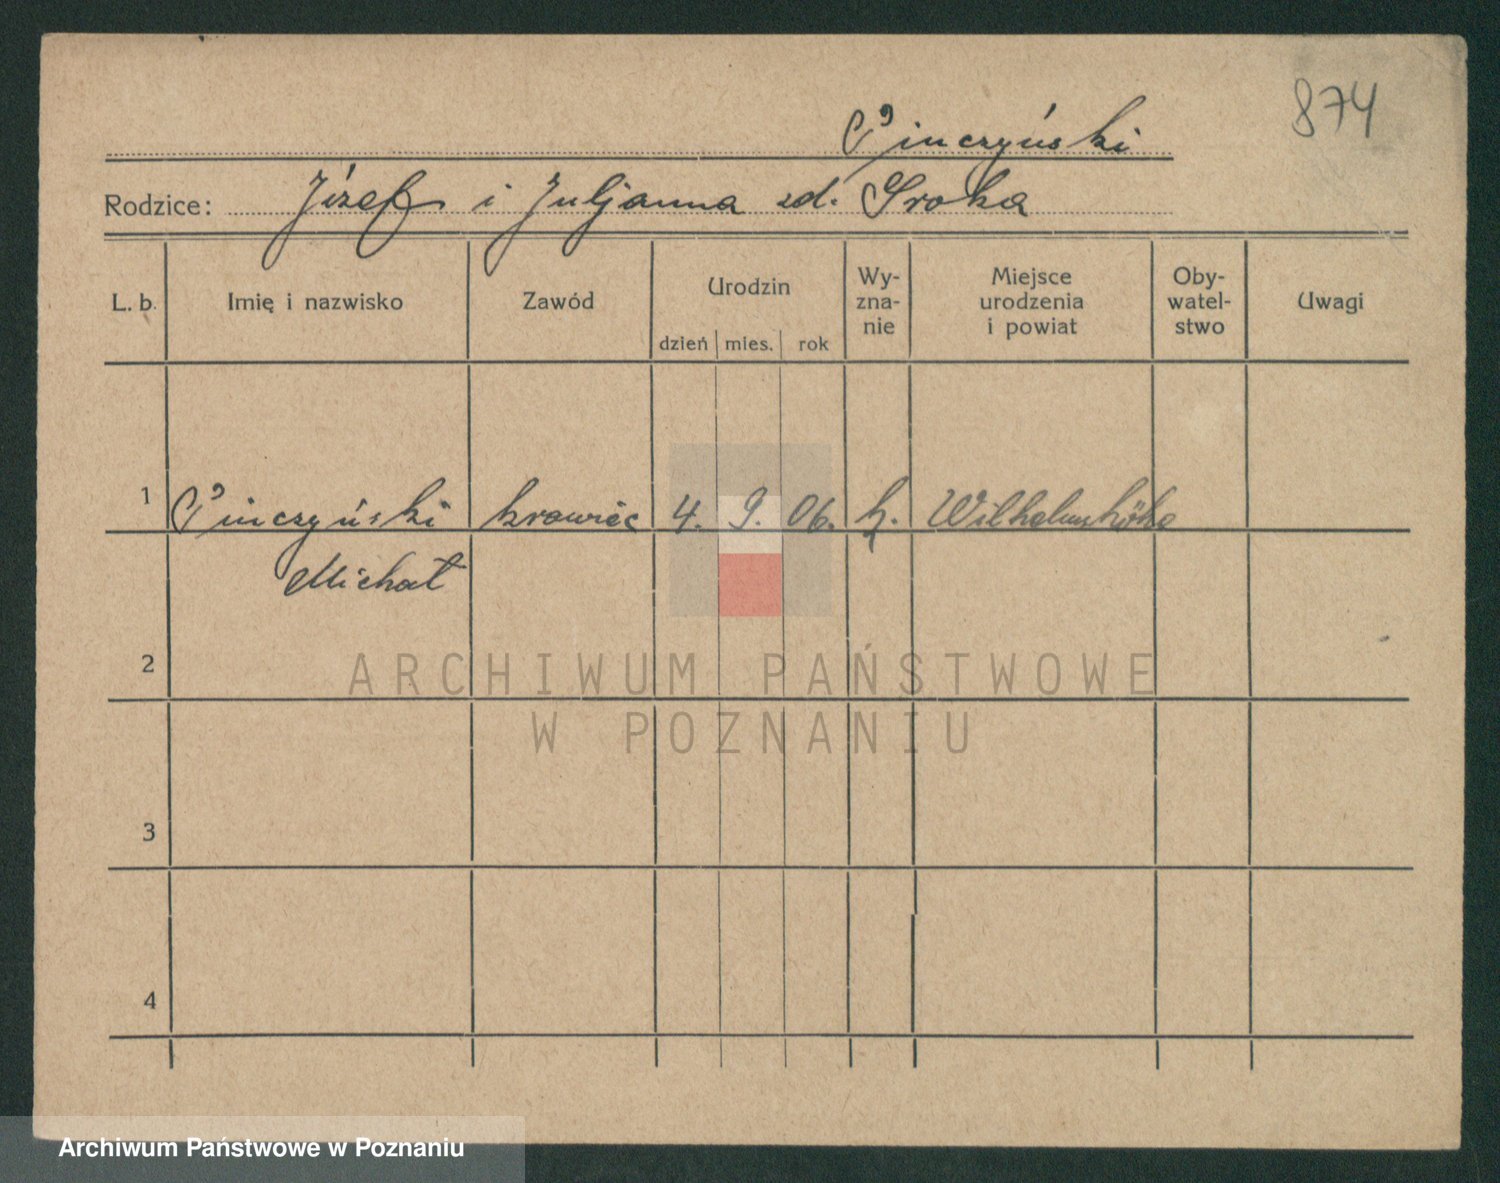 874
Pinczyński
Rodzice: Józef i Juljanna zd. Sroka
L. b. Imię i nazwisko Zawód Urodzin dzień mies. rok Wy-zna-nie Miejsce urodzenia i powiat Oby-watel-stwo Uwagi
1 Pinczyński krawiec 4. 9. 06. k. Wilhelmshöhe
Michał
2
ARCHIWUM PAŃSTWOWE
W POZNANIU
3
4
Archiwum Państwowe w Poznaniu